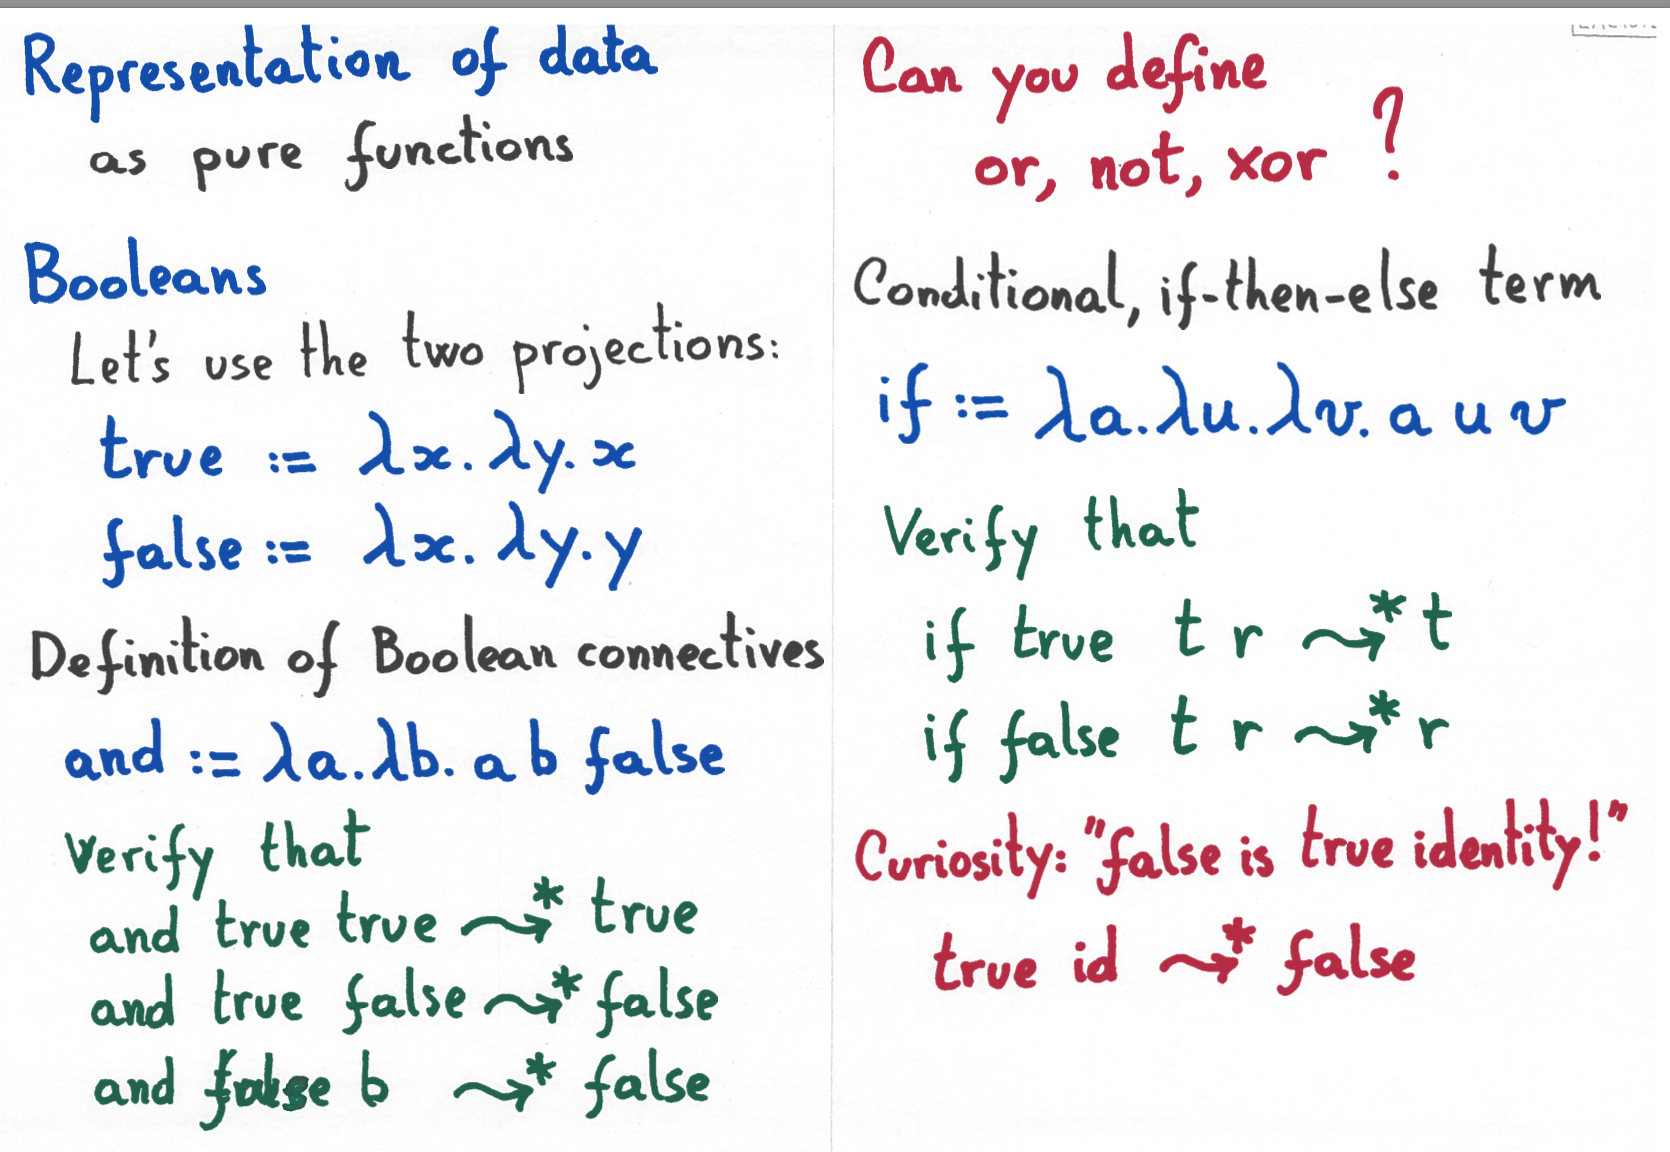 Representation of data
as pure functions
Booleans
Let's use the two projections:
true := λx. λy. x
false := λx. λy. y
Definition of Boolean connectives
and := λa. λb. a b false
Verify that
and true true ⤳* true
and true false ⤳* false
and false b ⤳* false
Can you define
or, not, xor ?
Conditional, if-then-else term
if := λa. λu. λv. a u v
Verify that
if true t r ⤳* t
if false t r ⤳* r
Curiosity: "false is true identity!"
true id ⤳* false